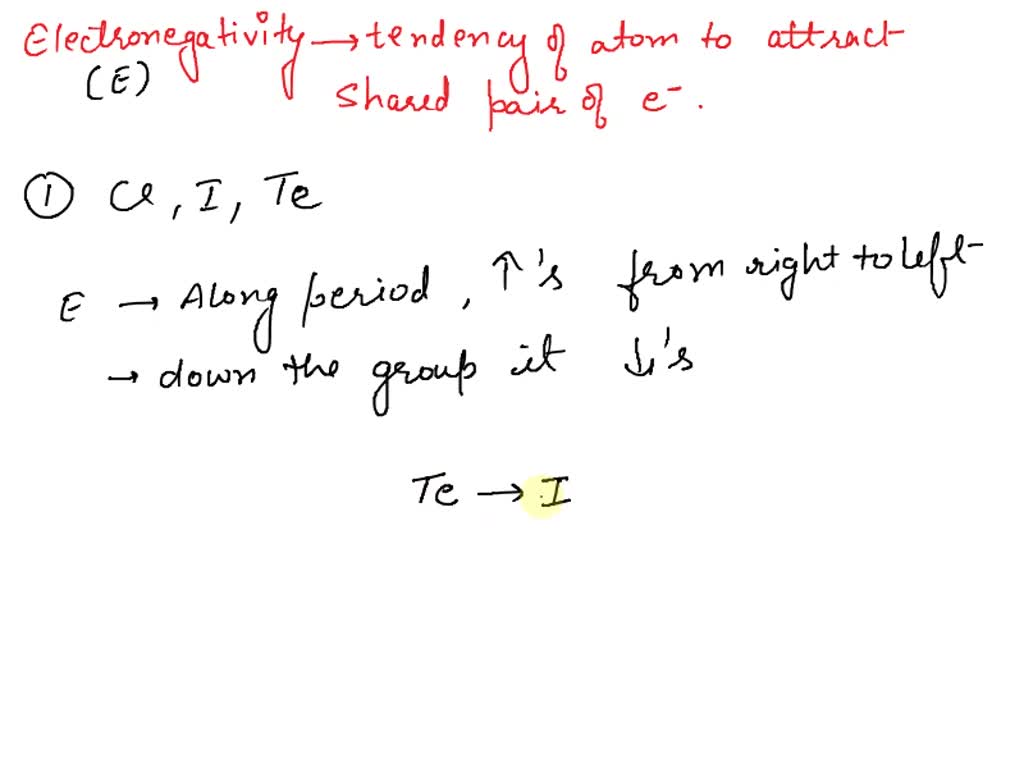 Electronegativity → tendency of atom to attract
(E) shared pair of e⁻.
① Cl, I, Te
E → Along period, ↑'s from right to left
→ down the group it ↓'s
Te → I